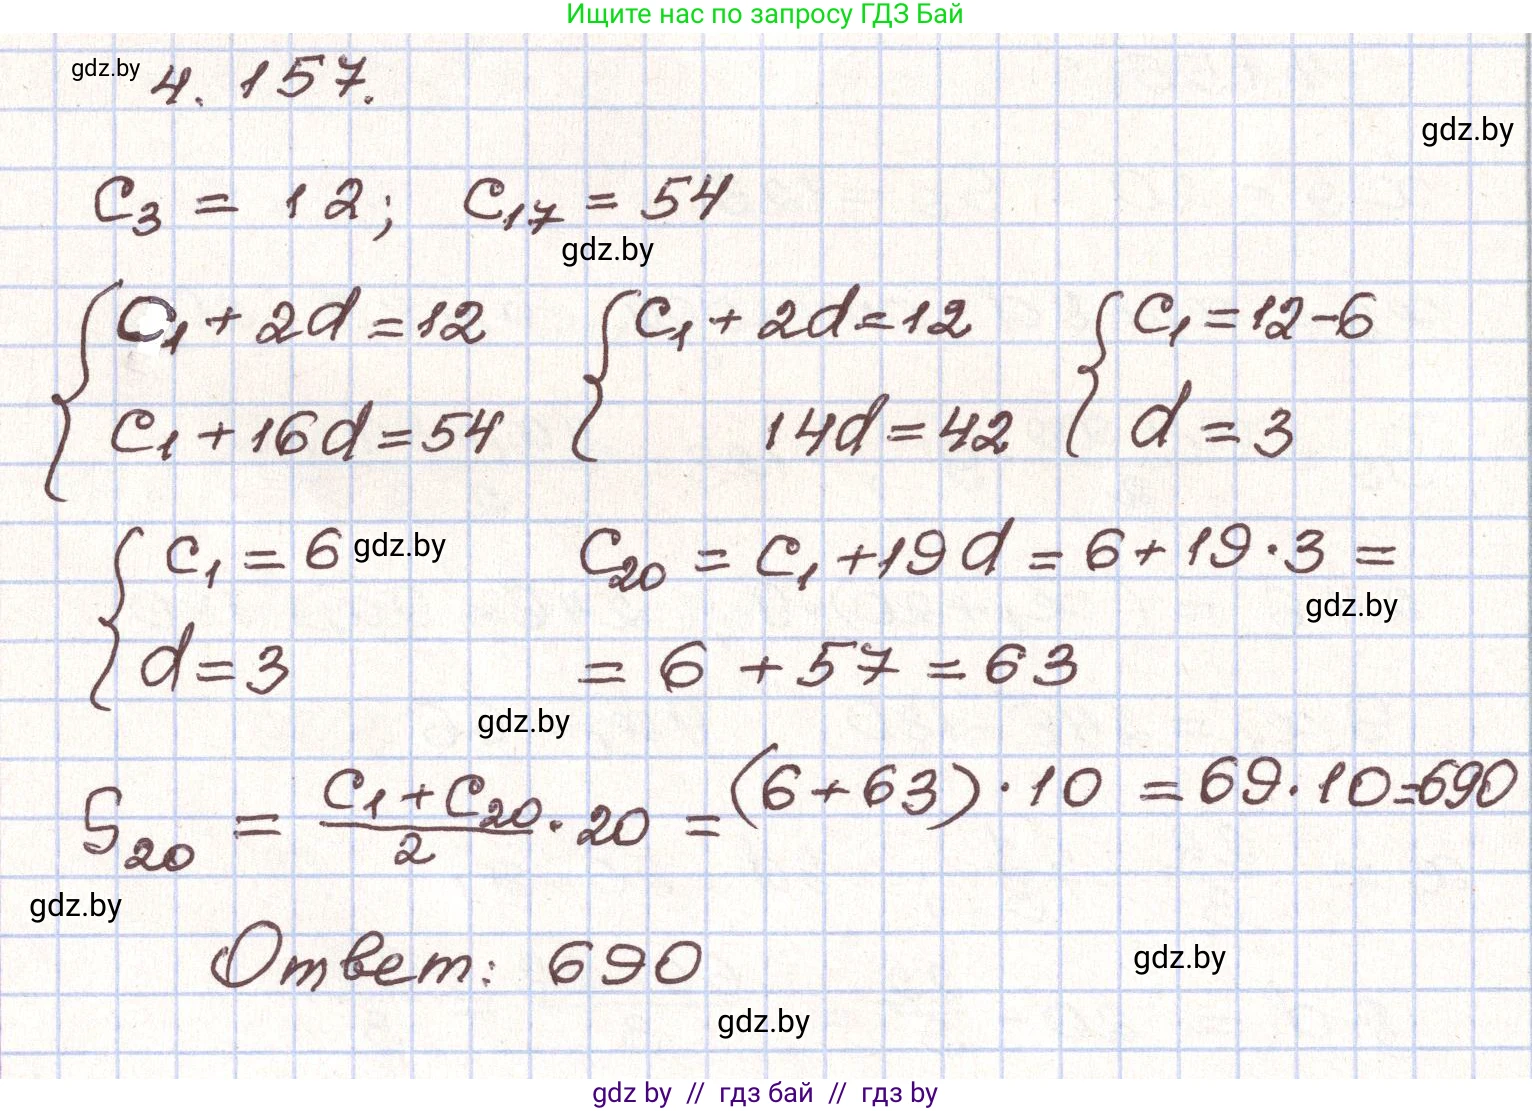 Ищите нас по запросу ГДЗ Бай
gdz.by 4.157.
gdz.by
C₃ = 12; C₁₇ = 54
gdz.by
{ C₁ + 2d = 12 { C₁ + 2d = 12 { C₁ = 12 - 6
C₁ + 16d = 54 14d = 42 d = 3
{ C₁ = 6 gdz.by C₂₀ = C₁ + 19d = 6 + 19 · 3 =
gdz.by
d = 3 = 6 + 57 = 63
gdz.by
S₂₀ = (C₁ + C₂₀)/2 · 20 = (6 + 63) · 10 = 69 · 10 = 690
gdz.by
Ответ: 690
gdz.by
gdz.by
gdz by // гдз бай // гдз by